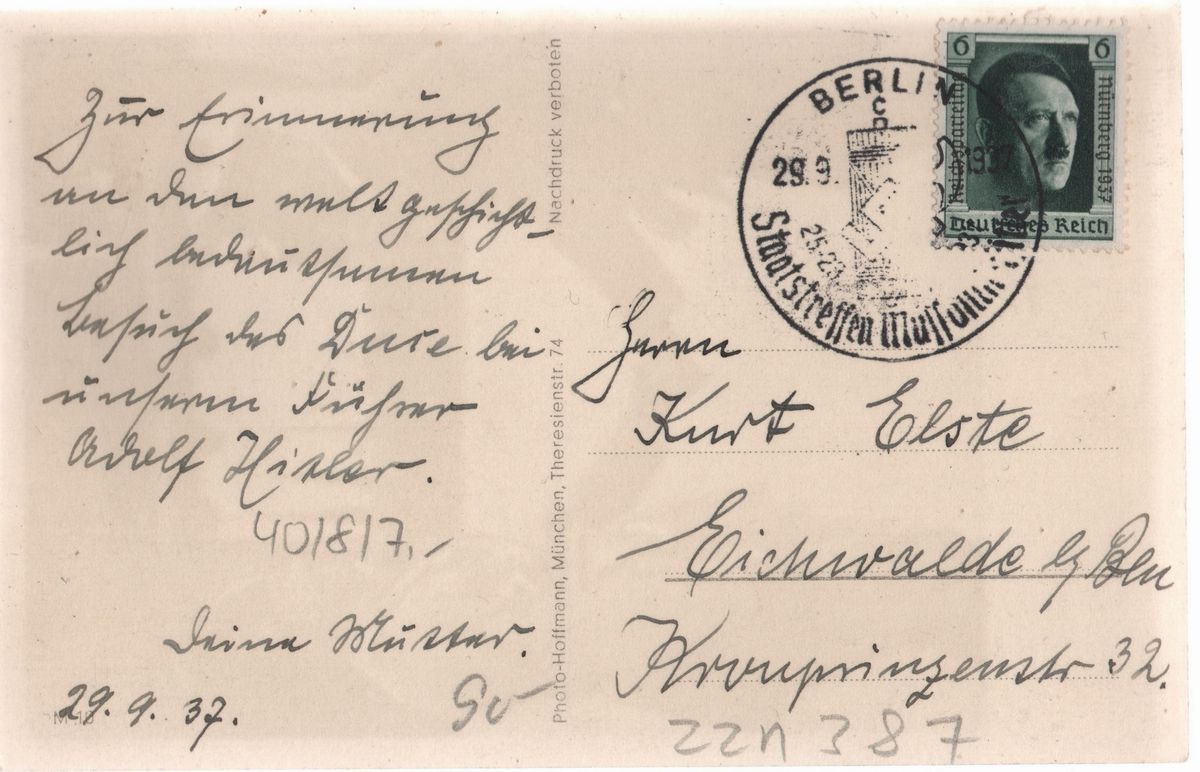 Zur Erinnerung
an den weltgeschicht-
lich bedeutsamen
Besuch des Duce bei
unserm Führer
Adolf Hitler.
40/8/7,-
Deine Mutter.
29.9.37.
Photo-Hoffmann, München, Theresienstr. 74 Nachdruck verboten
BERLIN
C
2
29.9. 1937
Staatstreffen Mussolini
6 6
Reichsparteitag
Nürnberg 1937
Deutsches Reich
Herrn
Kurt Elste
Eichwalde b/Bln
Kronprinzenstr 32.
22n 387